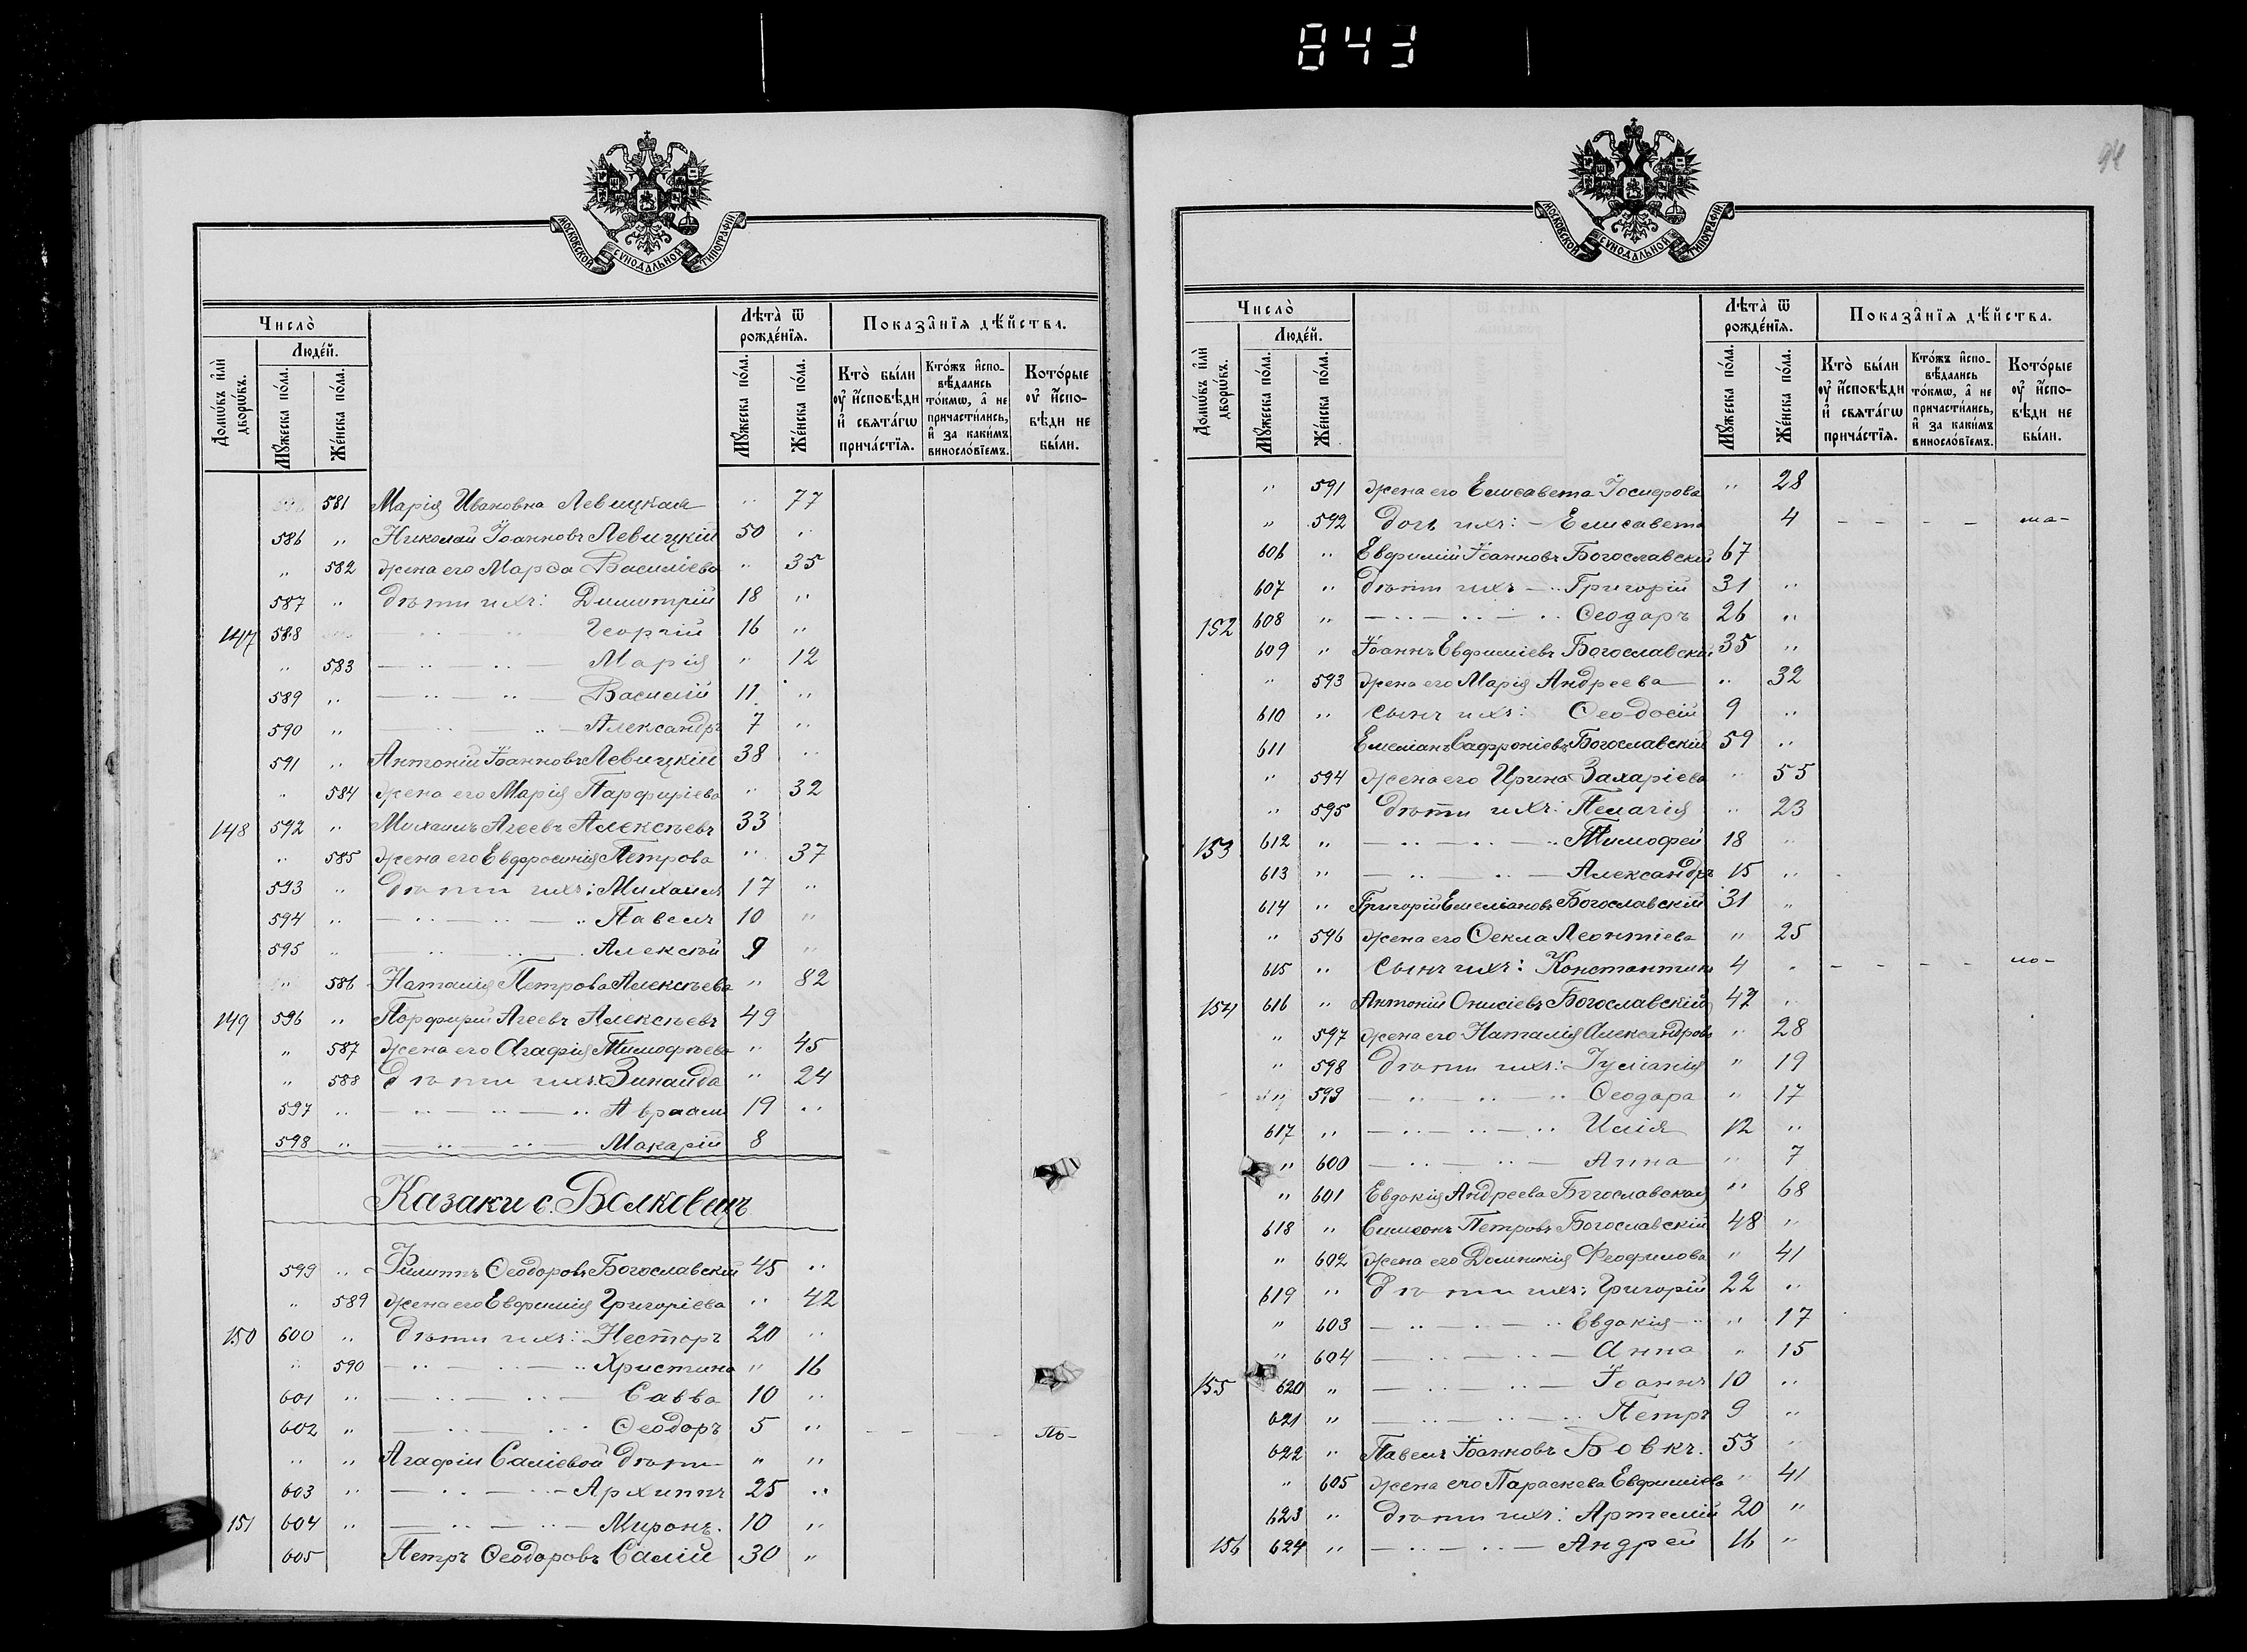 843
МОСКОВСКОЙ СѴНОДАЛЬНОЙ ТИПОГРАФІИ
Число̀
Домѡ́въ и҆лѝ дворѡ́въ.
Люде́й.
Мꙋ́жеска по́ла.
Же́нска по́ла.
Лѣта̀ ѿ рожде́нїѧ.
Мꙋ́жеска по́ла.
Же́нска по́ла.
Показа̂нїѧ дѣ́йства.
Кто̀ бы́ли оу҆ и҆́сповѣди и҆ свѧта́гѡ прича́стїѧ.
Кто́жъ и҆спо-вѣ́дались то́кмѡ, а҆ не причасти́лись, и҆ за каки́мъ винослові́емъ.
Кото́рые оу҆ и҆́спо-вѣди не бы́ли.
581 Марія Ивановна Левицкая " 77
586 " Николай Іоанновъ Левицкій 50 "
" 582 жена его Марѳа Василіева " 35
587 " дѣти ихъ: Димитрій 18 "
147 588 — " — " Георгій 16 "
" 583 — " — " — Марія " 12
589 " — " — " — Василій 11 "
590 " — " — " — Александръ 7 "
591 " Антоній Іоанновъ Левицкій 38 "
" 584 жена его Марія Парфиріева " 32
148 592 " Михаилъ Агеевъ Алексѣевъ 33
" 585 жена его Евфросинія Петрова " 37
593 " дѣти ихъ: Михаилъ 17 "
594 " — " — " — " Павелъ 10 "
595 " — " — " Алексѣй 9 "
" 586 Наталія Петрова Алексѣева " 82
149 596 " Порфирій Агеевъ Алексѣевъ 49
" 587 жена его Агафія Тимофѣева " 45
" 588 дѣти ихъ: Зинаида " 24
597 " — " — " — " Авраамъ 19 "
598 " — " — " — Макарій 8
Казаки с. Волковецъ
599 " Филиппъ Ѳеодоровъ Богославскій 45 "
" 589 жена его Евфимія Григоріева " 42
150 600 " дѣти ихъ: Несторъ 20 "
" 590 — " — " — " Христина " 16
601 " — " — " — Савва 10 "
602 " — " — " Ѳеодоръ 5 " - - - -
" " Агафіи Саліевой дѣти " "
603 " — " — " — Архиппъ 25 "
151 604 " — " — " — Миронъ. 10 "
605 Петръ Ѳеодоровъ Салій 30 "
94
МОСКОВСКОЙ СѴНОДАЛЬНОЙ ТИПОГРАФІИ
Число̀
Домѡ́въ и҆лѝ дворѡ́въ.
Люде́й.
Мꙋ́жеска по́ла.
Же́нска по́ла.
Лѣта̀ ѿ рожде́нїѧ.
Мꙋ́жеска по́ла.
Же́нска по́ла.
Показа̂нїѧ дѣ́йства.
Кто̀ бы́ли оу҆ и҆́сповѣди и҆ свѧта́гѡ прича́стїѧ.
Кто́жъ и҆спо-вѣ́дались то́кмѡ, а҆ не причасти́лись, и҆ за каки́мъ винослові́емъ.
Кото́рые оу҆ и҆́спо-вѣди не бы́ли.
" 591 жена его Елисавета Іосифова " 28
" 592 дочь ихъ: - Елисавета 4 - - - - ма-
606 " Евфимій Іоанновъ Богославскій 67
607 " дѣти ихъ — " Григорій 31 "
152 608 " — " — " — " Ѳеодаръ 26 "
609 " Іоаннъ Евфиміевъ Богославскій 35 "
" 593 жена его Марія Андреева " 32
610 " сынъ ихъ: Ѳеодосій 9 "
611 Емеліанъ Сафроніевъ Богославскій 59 "
" 594 жена его Ирина Захаріева " 55
" 595 дѣти ихъ: Пелагія " 23
153 612 " — " — " — " Тимофей 18 "
613 " — " — " — Александръ 15 "
614 " Григорій Емеліановъ Богославскій 31 "
" 596 жена его Ѳекла Леонтіева " 25
615 " сынъ ихъ: Константинъ 4 " - - - - ло-
154 616 " Антоній Онисіевъ Богославскій 47 "
" 597 жена его Наталія Александрова " 28
" 598 дѣти ихъ: Іуліанія " 19
" 599 — " — " — " Ѳеодара " 17
617 " — " — " — " Илія 12 "
" 600 — " — " — Анна " 7
" 601 Евдокія Андреева Богославская " 68
618 " Симеонъ Петровъ Богославскій 48 "
" 602 жена его Домникія Феофилова " 41
619 " дѣти ихъ: Григорій 22 "
" 603 — " — " — " Евдокія " 17
" 604 — " — " — Анна " 15
155 620 " — " — " — Іоаннъ 10 "
621 " — " — " — " Петръ 9 "
622 " Павелъ Іоанновъ Бовкъ. 53 "
" 605 жена его Параскева Евфиміева " 41
623 " дѣти ихъ: Артемій 20 "
156 624 " — " — " — Андрей 16 "